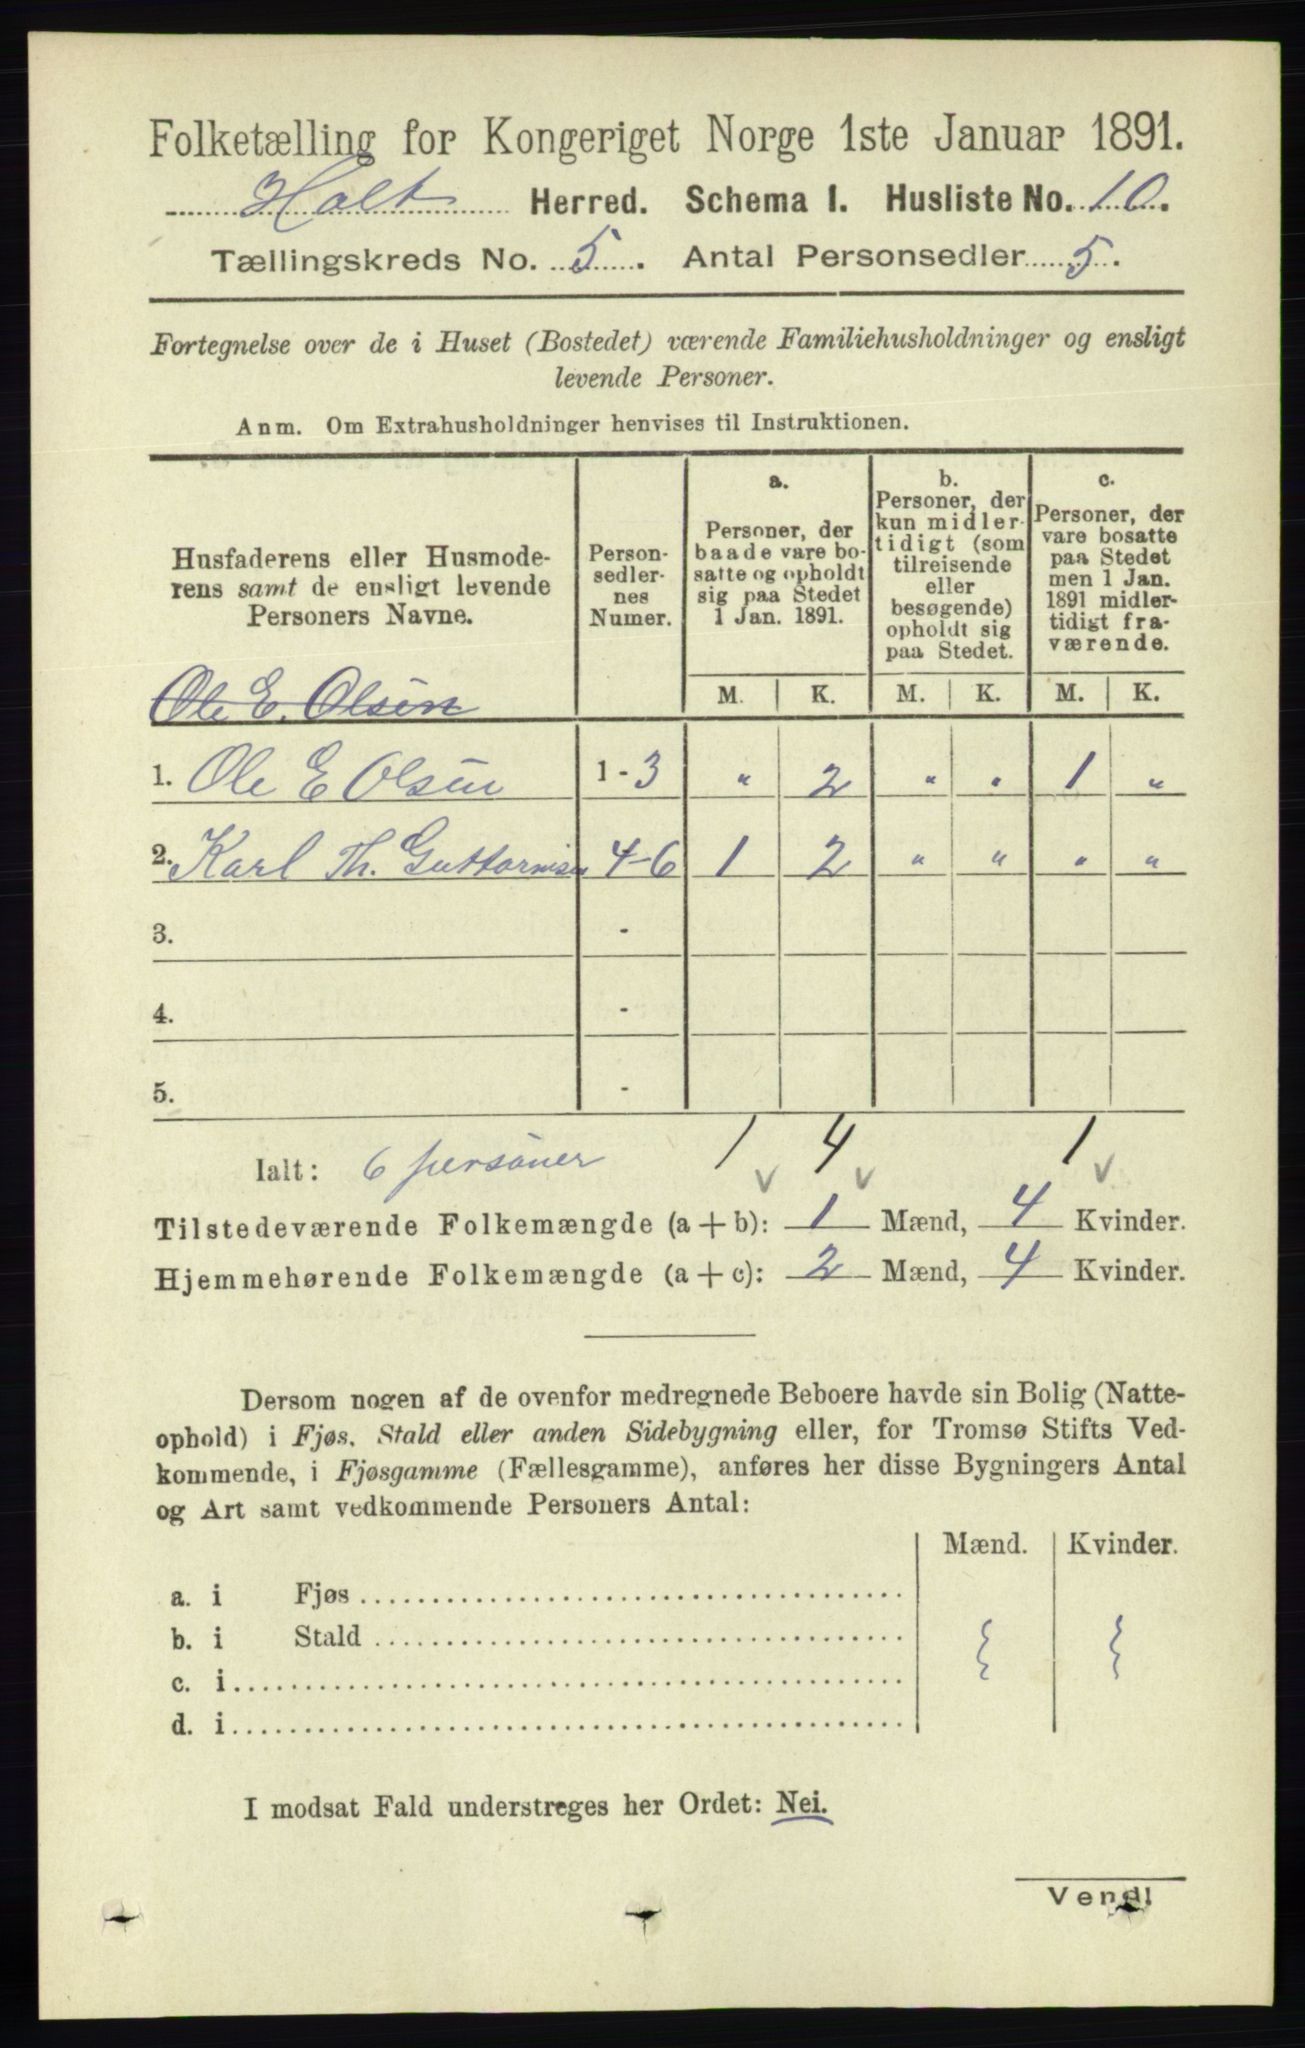 Folketælling for Kongeriget Norge 1ste Januar 1891.
Holt Herred. Schema I. Husliste No. 10.
Tællingskreds No. 5. Antal Personsedler 5.
Fortegnelse over de i Huset (Bostedet) værende Familiehusholdninger og ensligt
levende Personer.
Anm. Om Extrahusholdninger henvises til Instruktionen.
Husfaderens eller Husmode-
rens samt de ensligt levende
Personers Navne.
Person-
sedler-
nes
Numer.
a.
Personer, der
baade vare bo-
satte og opholdt
sig paa Stedet
1 Jan. 1891.
b.
Personer, der
kun midler-
tidigt (som
tilreisende
eller
besøgende)
opholdt sig
paa Stedet.
c.
Personer, der
vare bosatte
paa Stedet
men 1 Jan.
1891 midler-
tidigt fra-
værende.
M. K. M. K. M. K.
Ole E. Olsen
1. Ole E Olsen 1 - 3 " 2 " " 1 "
2. Karl Th. Guttormsen 4-6 1 2 " " " "
3. -
4. -
5. -
Ialt: 6 personer 1 4 1
Tilstedeværende Folkemængde (a + b): 1 Mænd, 4 Kvinder.
Hjemmehørende Folkemængde (a + c): 2 Mænd, 4 Kvinder.
Dersom nogen af de ovenfor medregnede Beboere havde sin Bolig (Natte-
ophold) i Fjøs, Stald eller anden Sidebygning eller, for Tromsø Stifts Ved-
kommende, i Fjøsgamme (Fællesgamme), anføres her disse Bygningers Antal
og Art samt vedkommende Personers Antal:
Mænd. Kvinder.
a. i Fjøs
b. i Stald
c. i
d. i
I modsat Fald understreges her Ordet: Nei.
Vend!